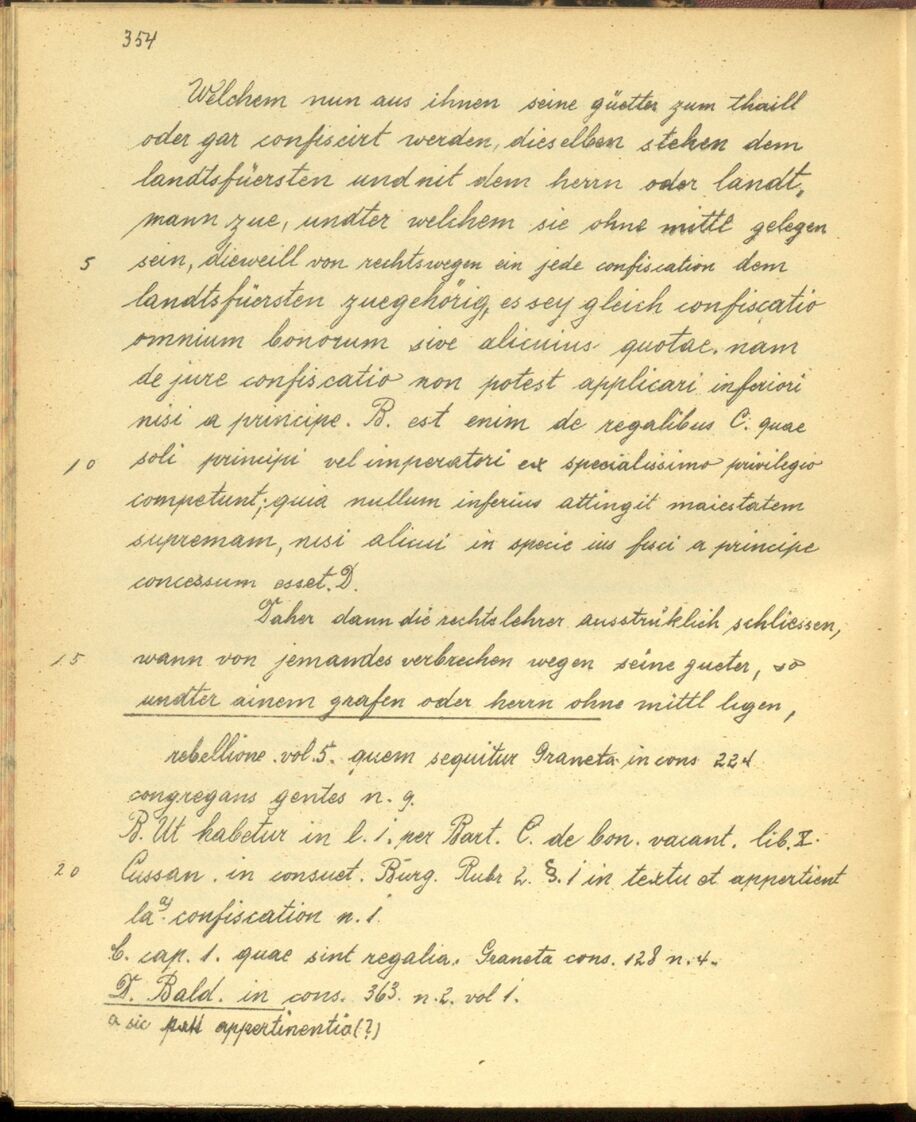 354
Welchem nun aus ihnen seine güetter zum thaill
oder gar confiscirt werden, dieselben stehen dem
landtsfüersten und nit dem herrn oder landt,
mann zue, undter welchem sie ohne mittl gelegen
5 sein, dieweill von rechtswegen ein jede confiscation dem
landtsfüersten zuegehörig, es sey gleich confiscatio
omnium bonorum sive alicuius quotae. nam
de jure confiscatio non potest applicari inferiori
nisi a principe. B. est enim de regalibus C. quae
10 soli principi vel imperatori ex specialissimo privilegio
competunt; quia nullum inferius attingit maiestatem
supremam, nisi alicui in specie ius fisci a principe
concessum esset. D.
Daher dann die rechtslehrer ausstrüklich schliessen,
15 wann von jemandes verbrechen wegen seine gueter, so
undter ainem grafen oder herrn ohne mittl ligen,
rebellione. vol. 5. quem sequitur Graneta in cons 224
congregans gentes n. 9.
B. Ut habetur in l. i. per Bart. C. de bon. vacant. lib. X.
20 Cussan. in consuet. Burg. Rubr 2. §. 1 in textu et appertient
la a) confiscation n. 1.
C. cap. 1. quae sint regalia. Graneta cons. 128 n. 4.
D. Bald. in cons. 363. n. 2. vol 1.
a sic appertinentia (?)